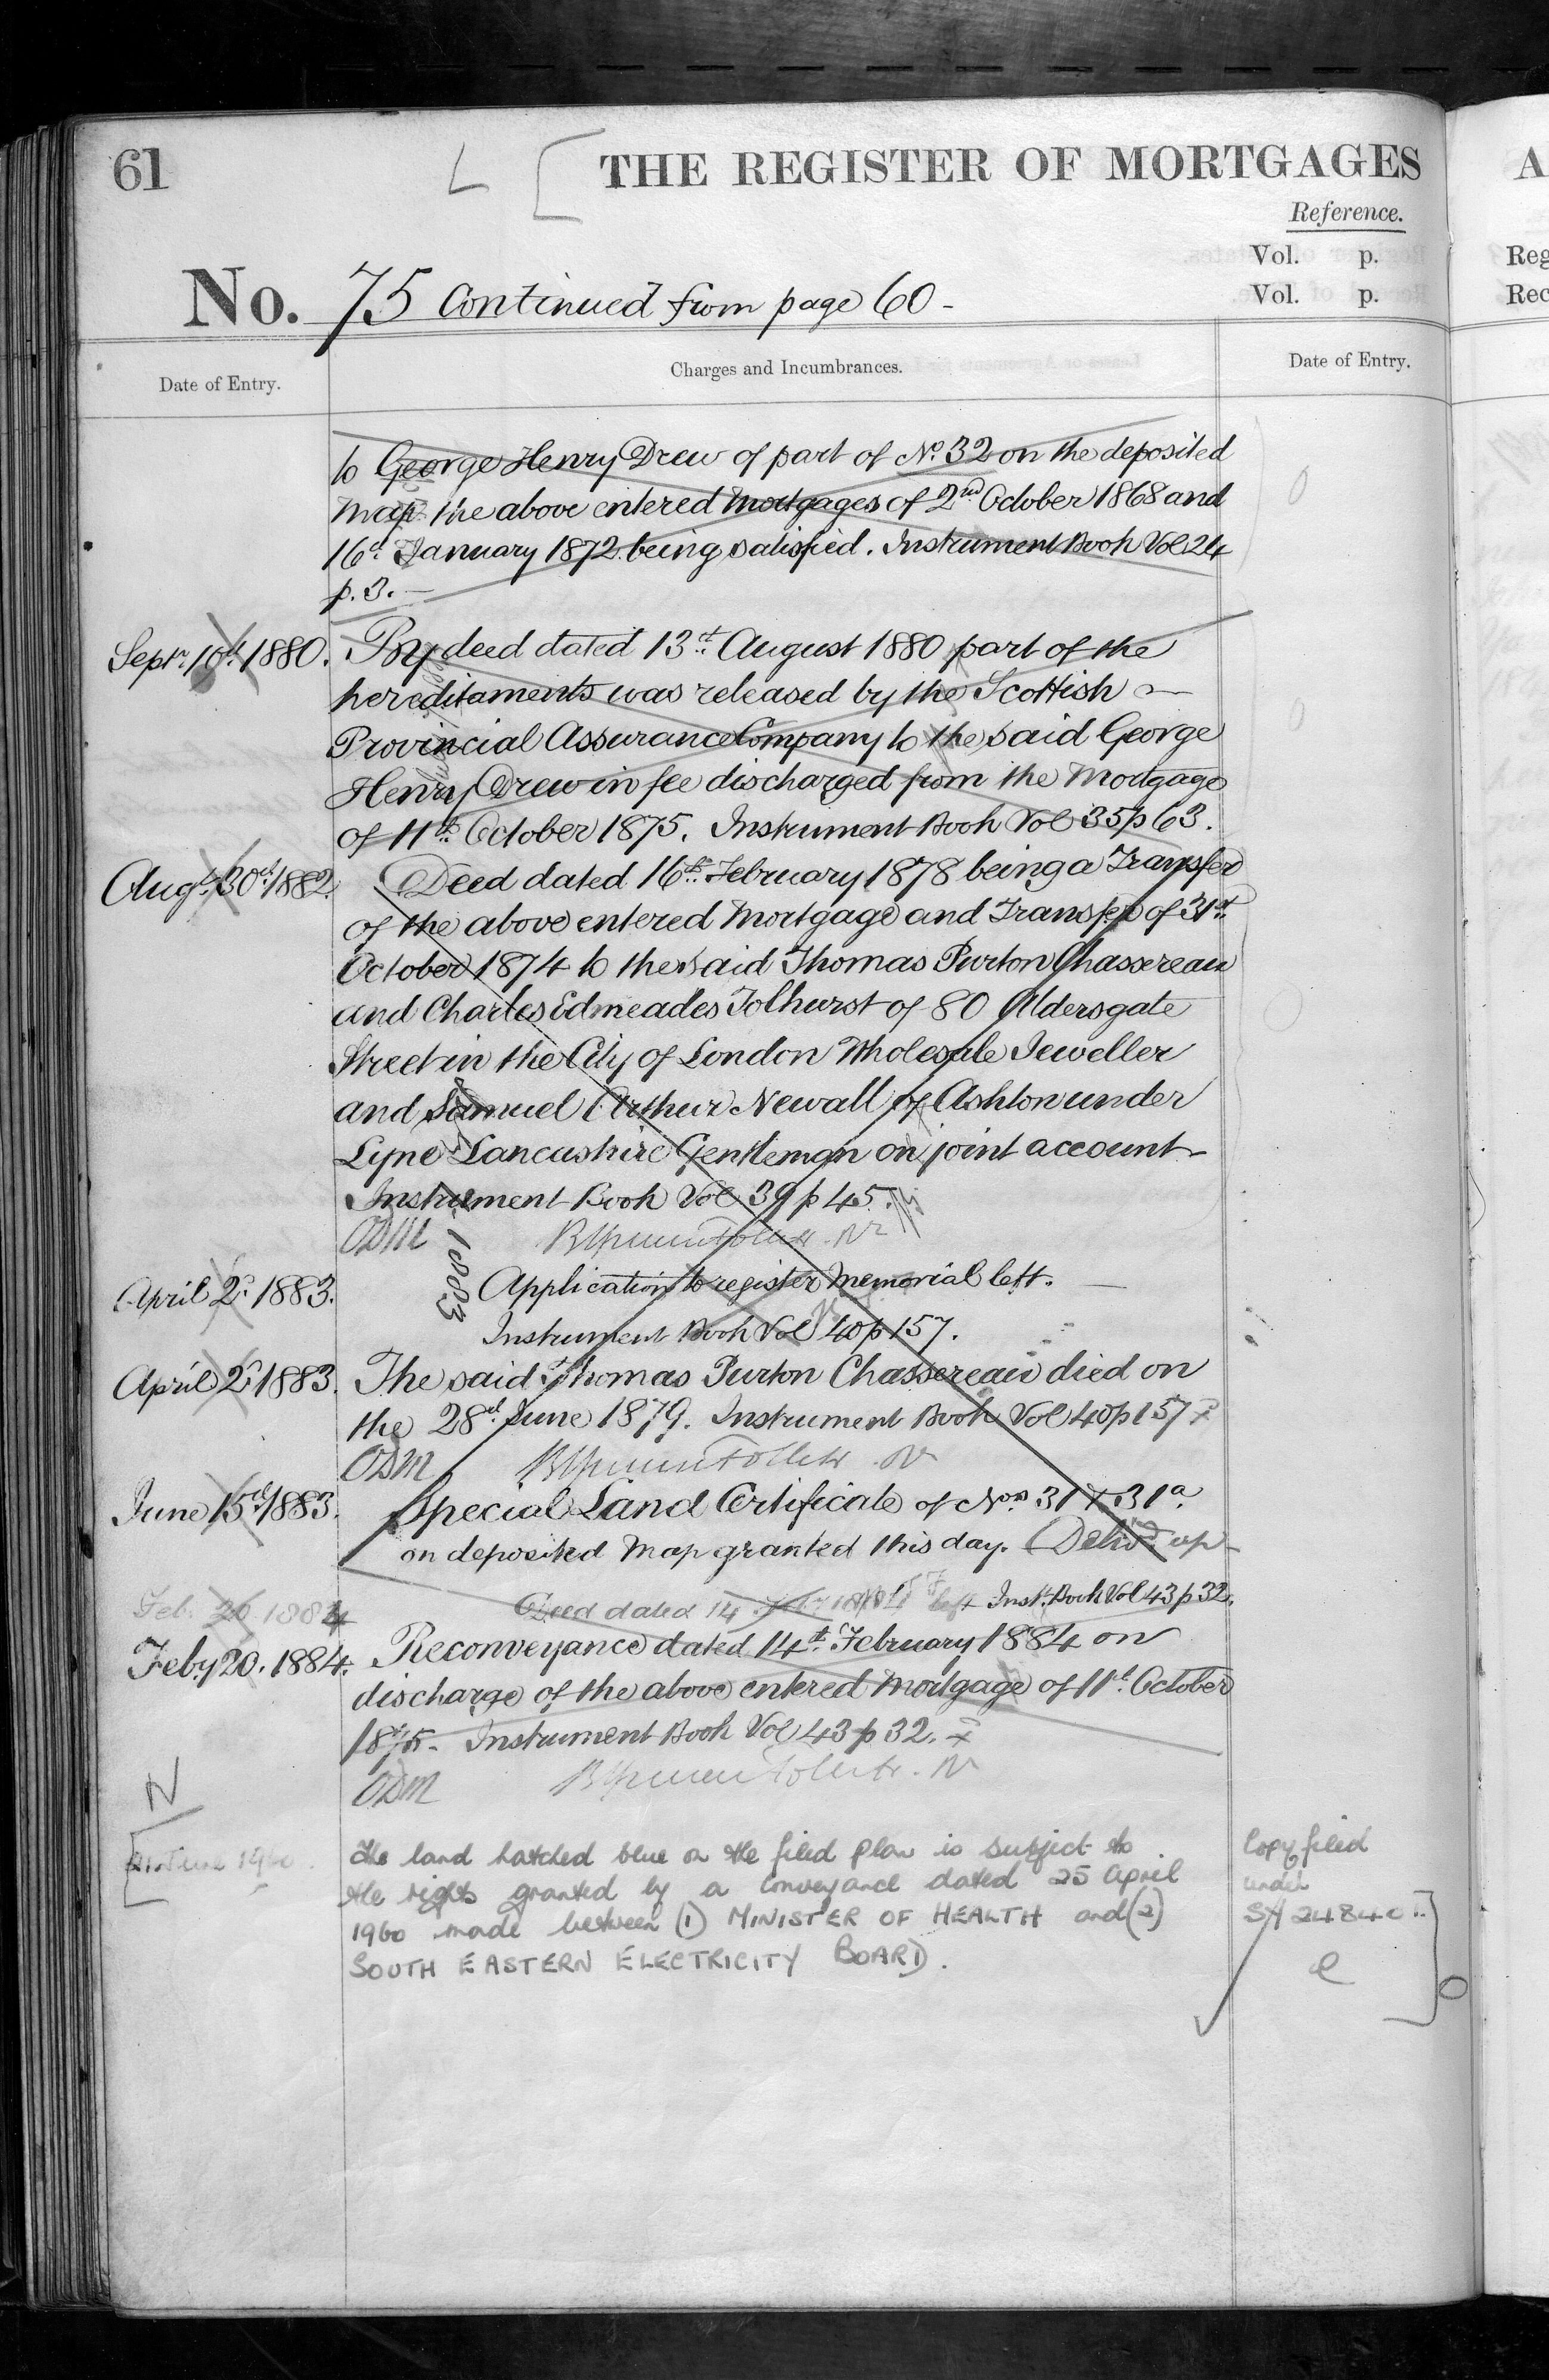 61
THE REGISTER OF MORTGAGES
Reference.
Vol. p.
Vol. p.
No. 75 Continued from page 60 -
Date of Entry.
Charges and Incumbrances.
Date of Entry.
to George Henry Drew of part of No. 32 on the deposited
Map the above entered Mortgages of 2nd October 1868 and
16th January 1872 being satisfied. Instrument Book Vol 24
p. 3. -
Septr. 10th 1880. By deed dated 13th August 1880 part of the
hereditaments was released by the Scottish
Provincial Assurance Company to the said George
Henry Drew in fee discharged from the Mortgage
of 11th October 1875. Instrument Book Vol 35 p 63.
Augt. 30th 1882. Deed dated 16th February 1878 being a Transfer
of the above entered Mortgage and Transfer of 31st
October 1874 to the said Thomas Purton Chassereau
and Charles Edmeades Tolhurst of 80 Aldersgate
Street in the City of London Wholesale Jeweller
and Samuel Arthur Newall of Ashton under
Lyne Lancashire Gentleman on joint account
Instrument Book Vol 39 p 45.
1883
April 2d 1883. Application to register Memorial left.
Instrument Book Vol 40 p 157.
April 2d 1883. The said Thomas Purton Chassereau died on
the 28th June 1879. Instrument Book Vol 40 p 157
June 15th 1883. Special Land Certificate of Nos 31 & 31a
on deposited Map granted this day. Delivd up
Feb. 20 1884 Deed dated 14 left Inst. Book Vol 43 p 32.
Feby 20. 1884. Reconveyance dated 14th February 1884 on
discharge of the above entered Mortgage of 11th October
1875. Instrument Book Vol 43 p 32.
N
The land hatched blue on the filed plan is subject to
the rights granted by a Conveyance dated 25 April
1960 made between (1) MINISTER OF HEALTH and (2)
SOUTH EASTERN ELECTRICITY BOARD.
Copy filed
under
A
Reg
Rec